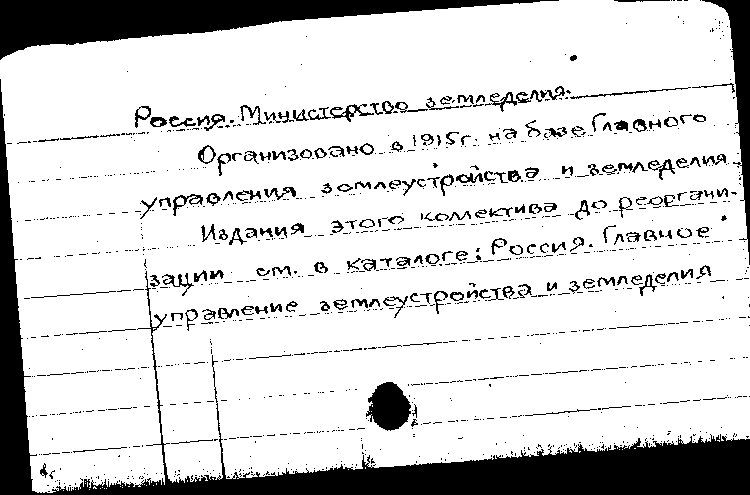 Россия. Министерство земледелия.
Организовано в 1915г. на базе Главного
управления землеустройства и земледелия.
Издания этого коллектива до реоргани-
зации см. в каталоге: Россия. Главное
управление землеустройства и земледелия